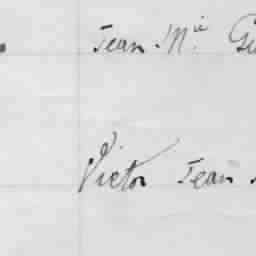 Jean Mie
Victor Jean